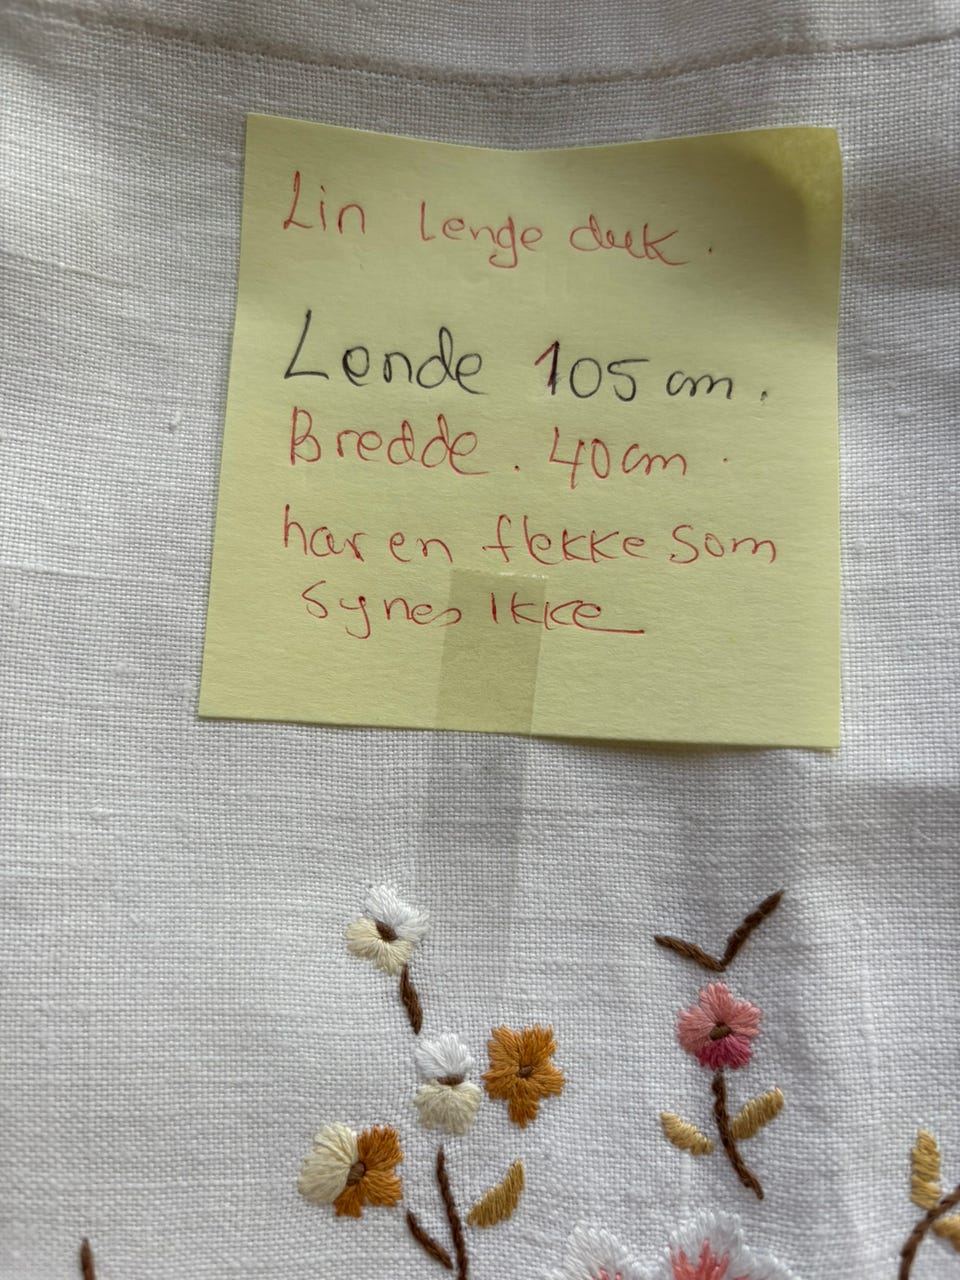 Lin lenge duk.
Lende 105 cm.
Bredde. 40 cm.
har en flekke som
synes ikke